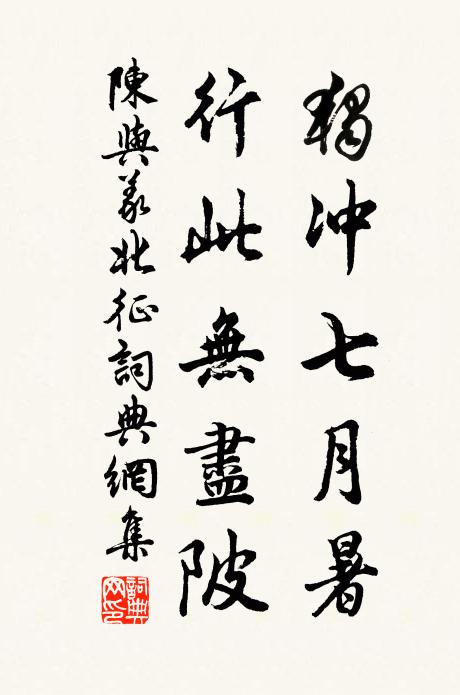 獨冲七月暑
行此無盡陂
陳與義北征詞典網集
詞典网印